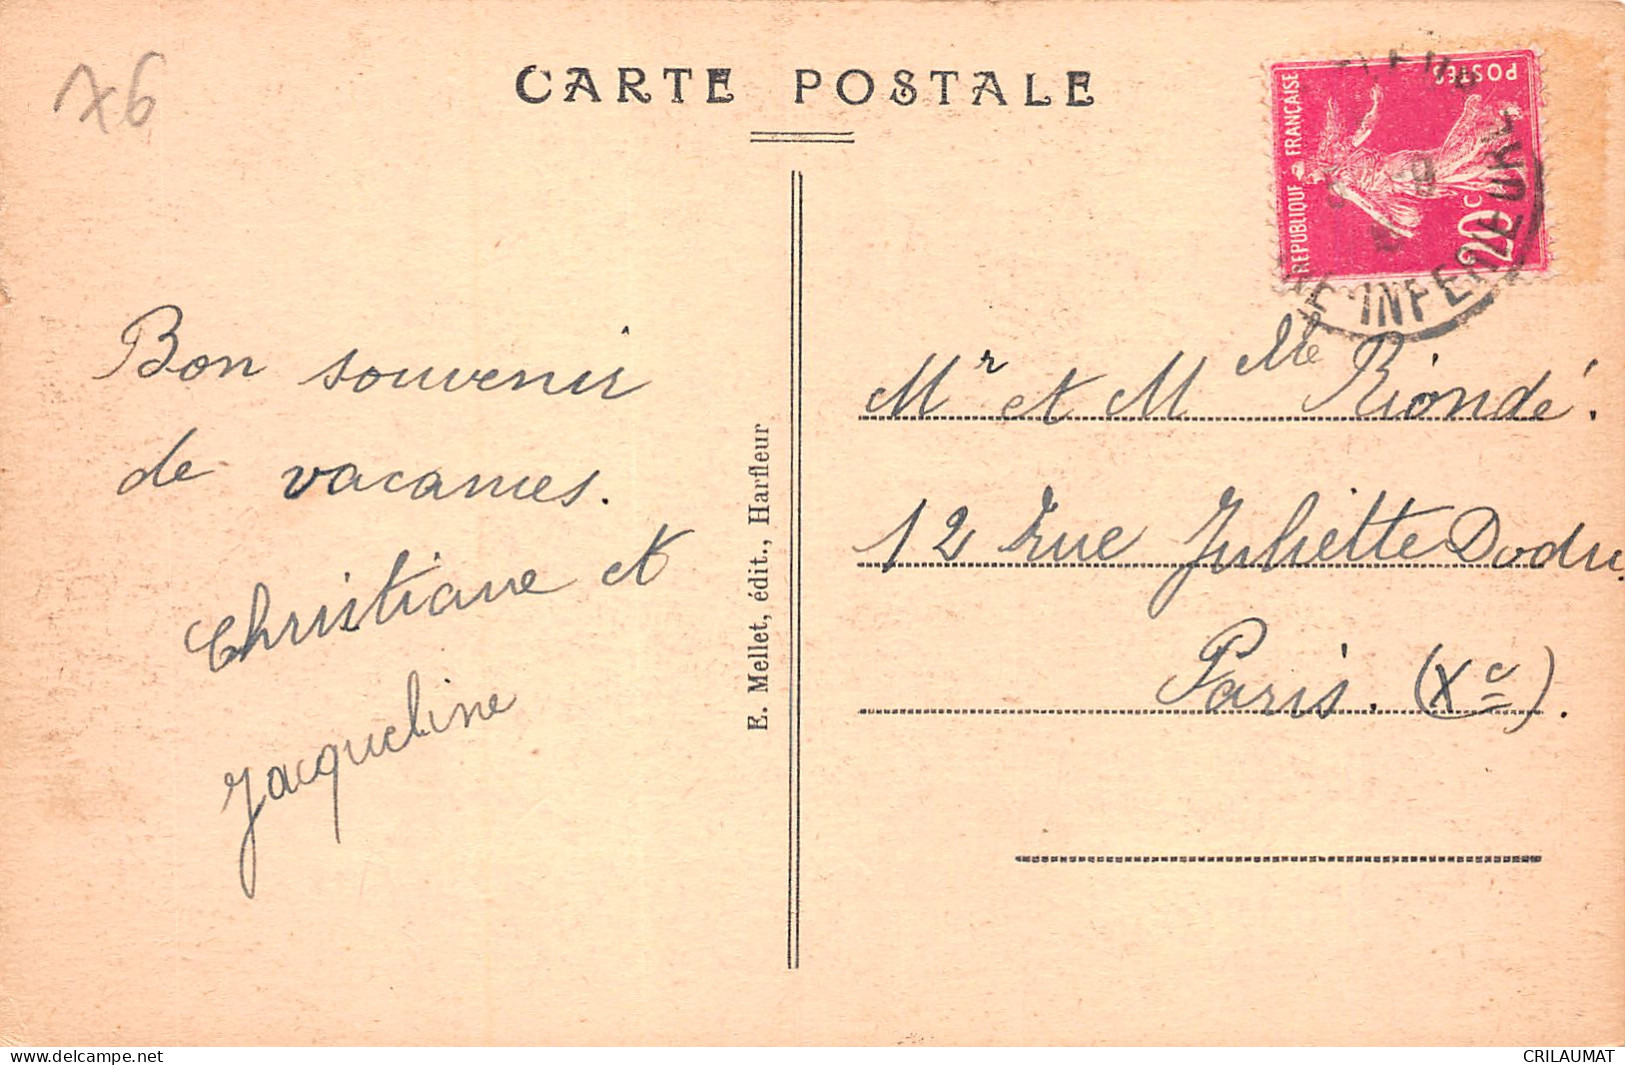 76
CARTE POSTALE
REPUBLIQUE FRANÇAISE
POSTES
20c
INFERIEURE
Bon souvenir
de vacances.
Christiane et
Jacqueline
E. Mellet, édit., Harfleur
Mr et M Mle Riondé.
12 rue Juliette Dodu
Paris. (Xe).
Delcampe.net
CRILAUMAT